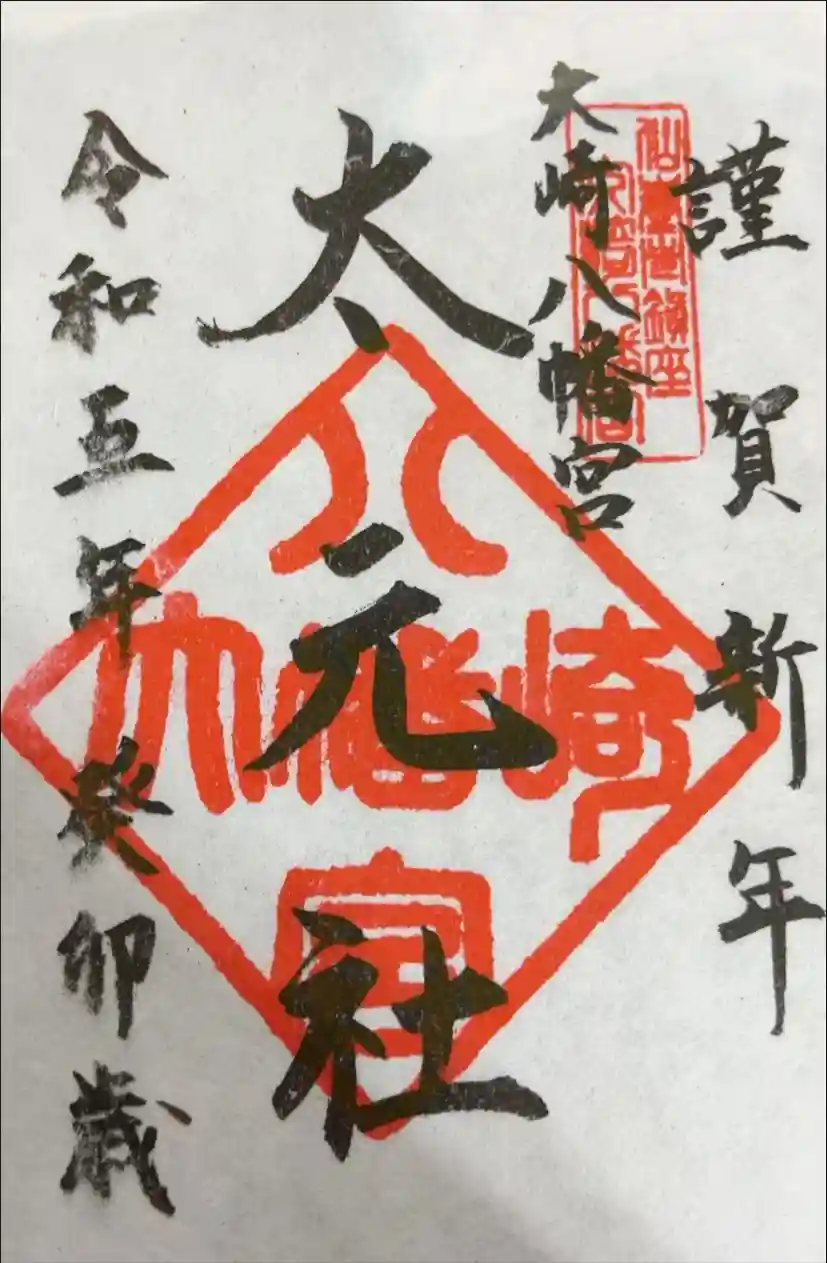 謹賀新年
大崎八幡宮
太元社
令和五年癸卯歳
大崎八幡宮